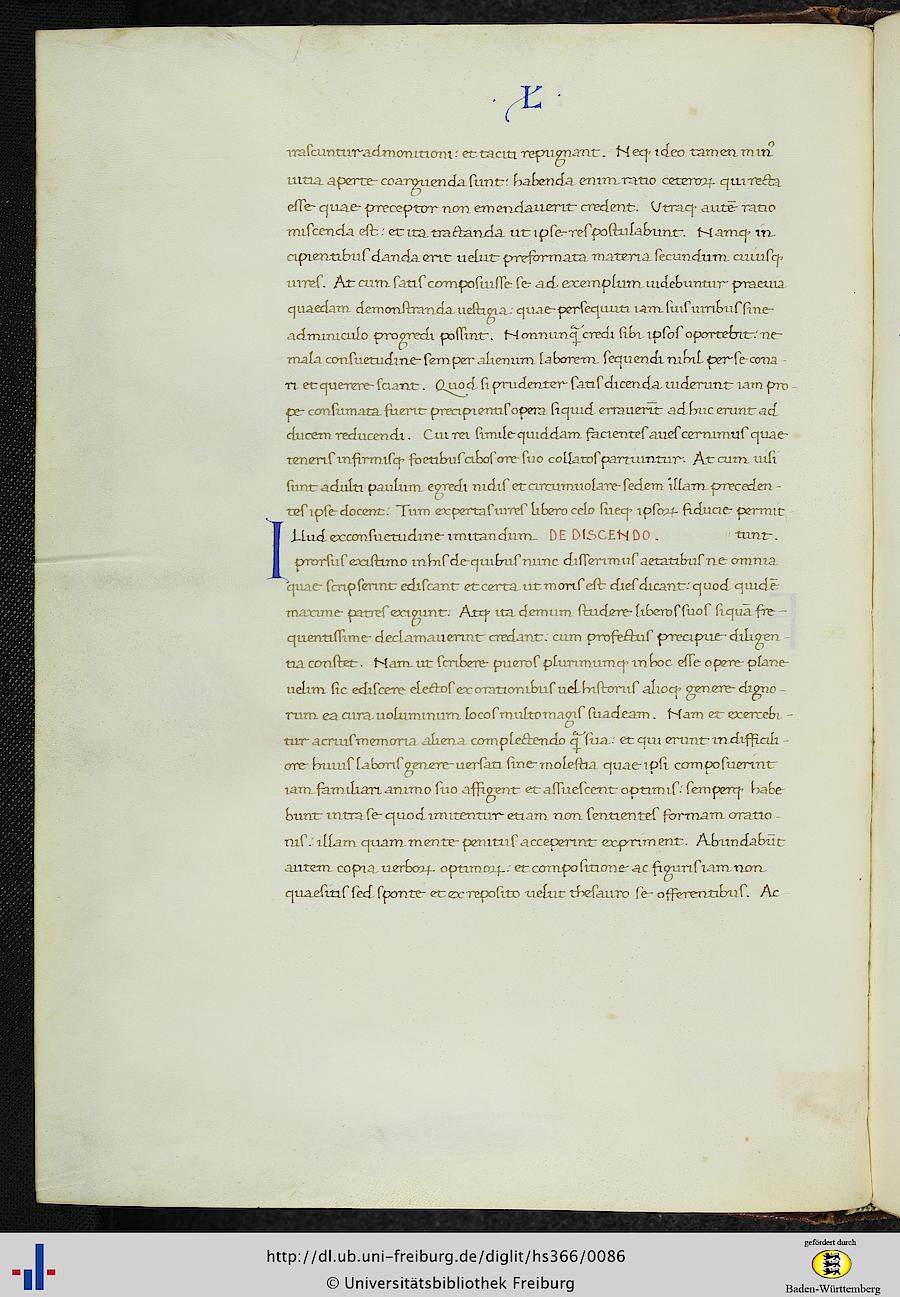 L
rascuntur admonitioni: et taciti repugnant. Neq; ideo tamen min᾽
uitia aperte coarguenda sunt: habenda enim ratio ceteroꝝ qui recta
esse quae preceptor non emendauerit credent. Utraq; autē ratio
miscenda est: et ita tractanda ut ipse res postulabunt. Namq; in
cipientibus danda erit uelut preformata materia secundum cuiusq;
uires. At cum satis composuisse se ad exemplum uidebuntur praeuia
quaedam demonstranda uestigia: quae persequuti iam suis uiribus sine
adminiculo progredi possint. Nonnunq̃ credi sibi ipsos oportebit: ne
mala consuetudine semper alienum laborem sequendi nihil per se cona-
ri et querere sciant. Quod si prudenter satis dicenda uiderunt iam pro-
pe consumata fuerit precipientis opera si quid errauerīt adhuc erunt ad
ducem reducendi. Cui rei simile quiddam facientes aues cernimus quae
teneris infirmisq; foetibus cibos ore suo collatos partiuntur. At cum uisi
sunt adulti paulum egredi nidis et circumuolare sedem illam preceden-
tes ipse docent. Tum expertas uires libero celo sueq; ipsoꝝ fiducie permit
Illud ex consuetudine imitandum DE DISCENDO. tunt.
prorsus existimo in his de quibus nunc disserimus aetatibus ne omnia
quae scripserint ediscant et certa ut moris est dies dicant: quod quidē
maxime patres exigunt. Atq; ita demum studere liberos suos si quā fre-
quentissime declamauerint credant: cum profectus precipue diligen-
tia constet. Nam ut scribere pueros plurimumq; in hoc esse opere plane
uelim sic ediscere electos ex orationibus uel historiis alioq; genere digno-
rum ea cura uoluminum locos multo magis suadeam. Nam et exercebi-
tur acrius memoria aliena complectendo q̃ sua: et qui erunt in difficili-
ore huius laboris genere uersati sine molestia quae ipsi composuerint
iam familiari animo suo affigent et assuescent optimis: semperq; habe
bunt intra se quod imitentur etiam non sentientes formam oratio-
nis: illam quam mente penitus acceperint expriment. Abundabūt
autem copia uerboꝝ optimoꝝ: et compositione ac figuris iam non
quaesitis sed sponte et ex reposito uelut thesauro se offerentibus. Ac
http://dl.ub.uni-freiburg.de/diglit/hs366/0086
© Universitätsbibliothek Freiburg
gefördert durch
Baden-Württemberg